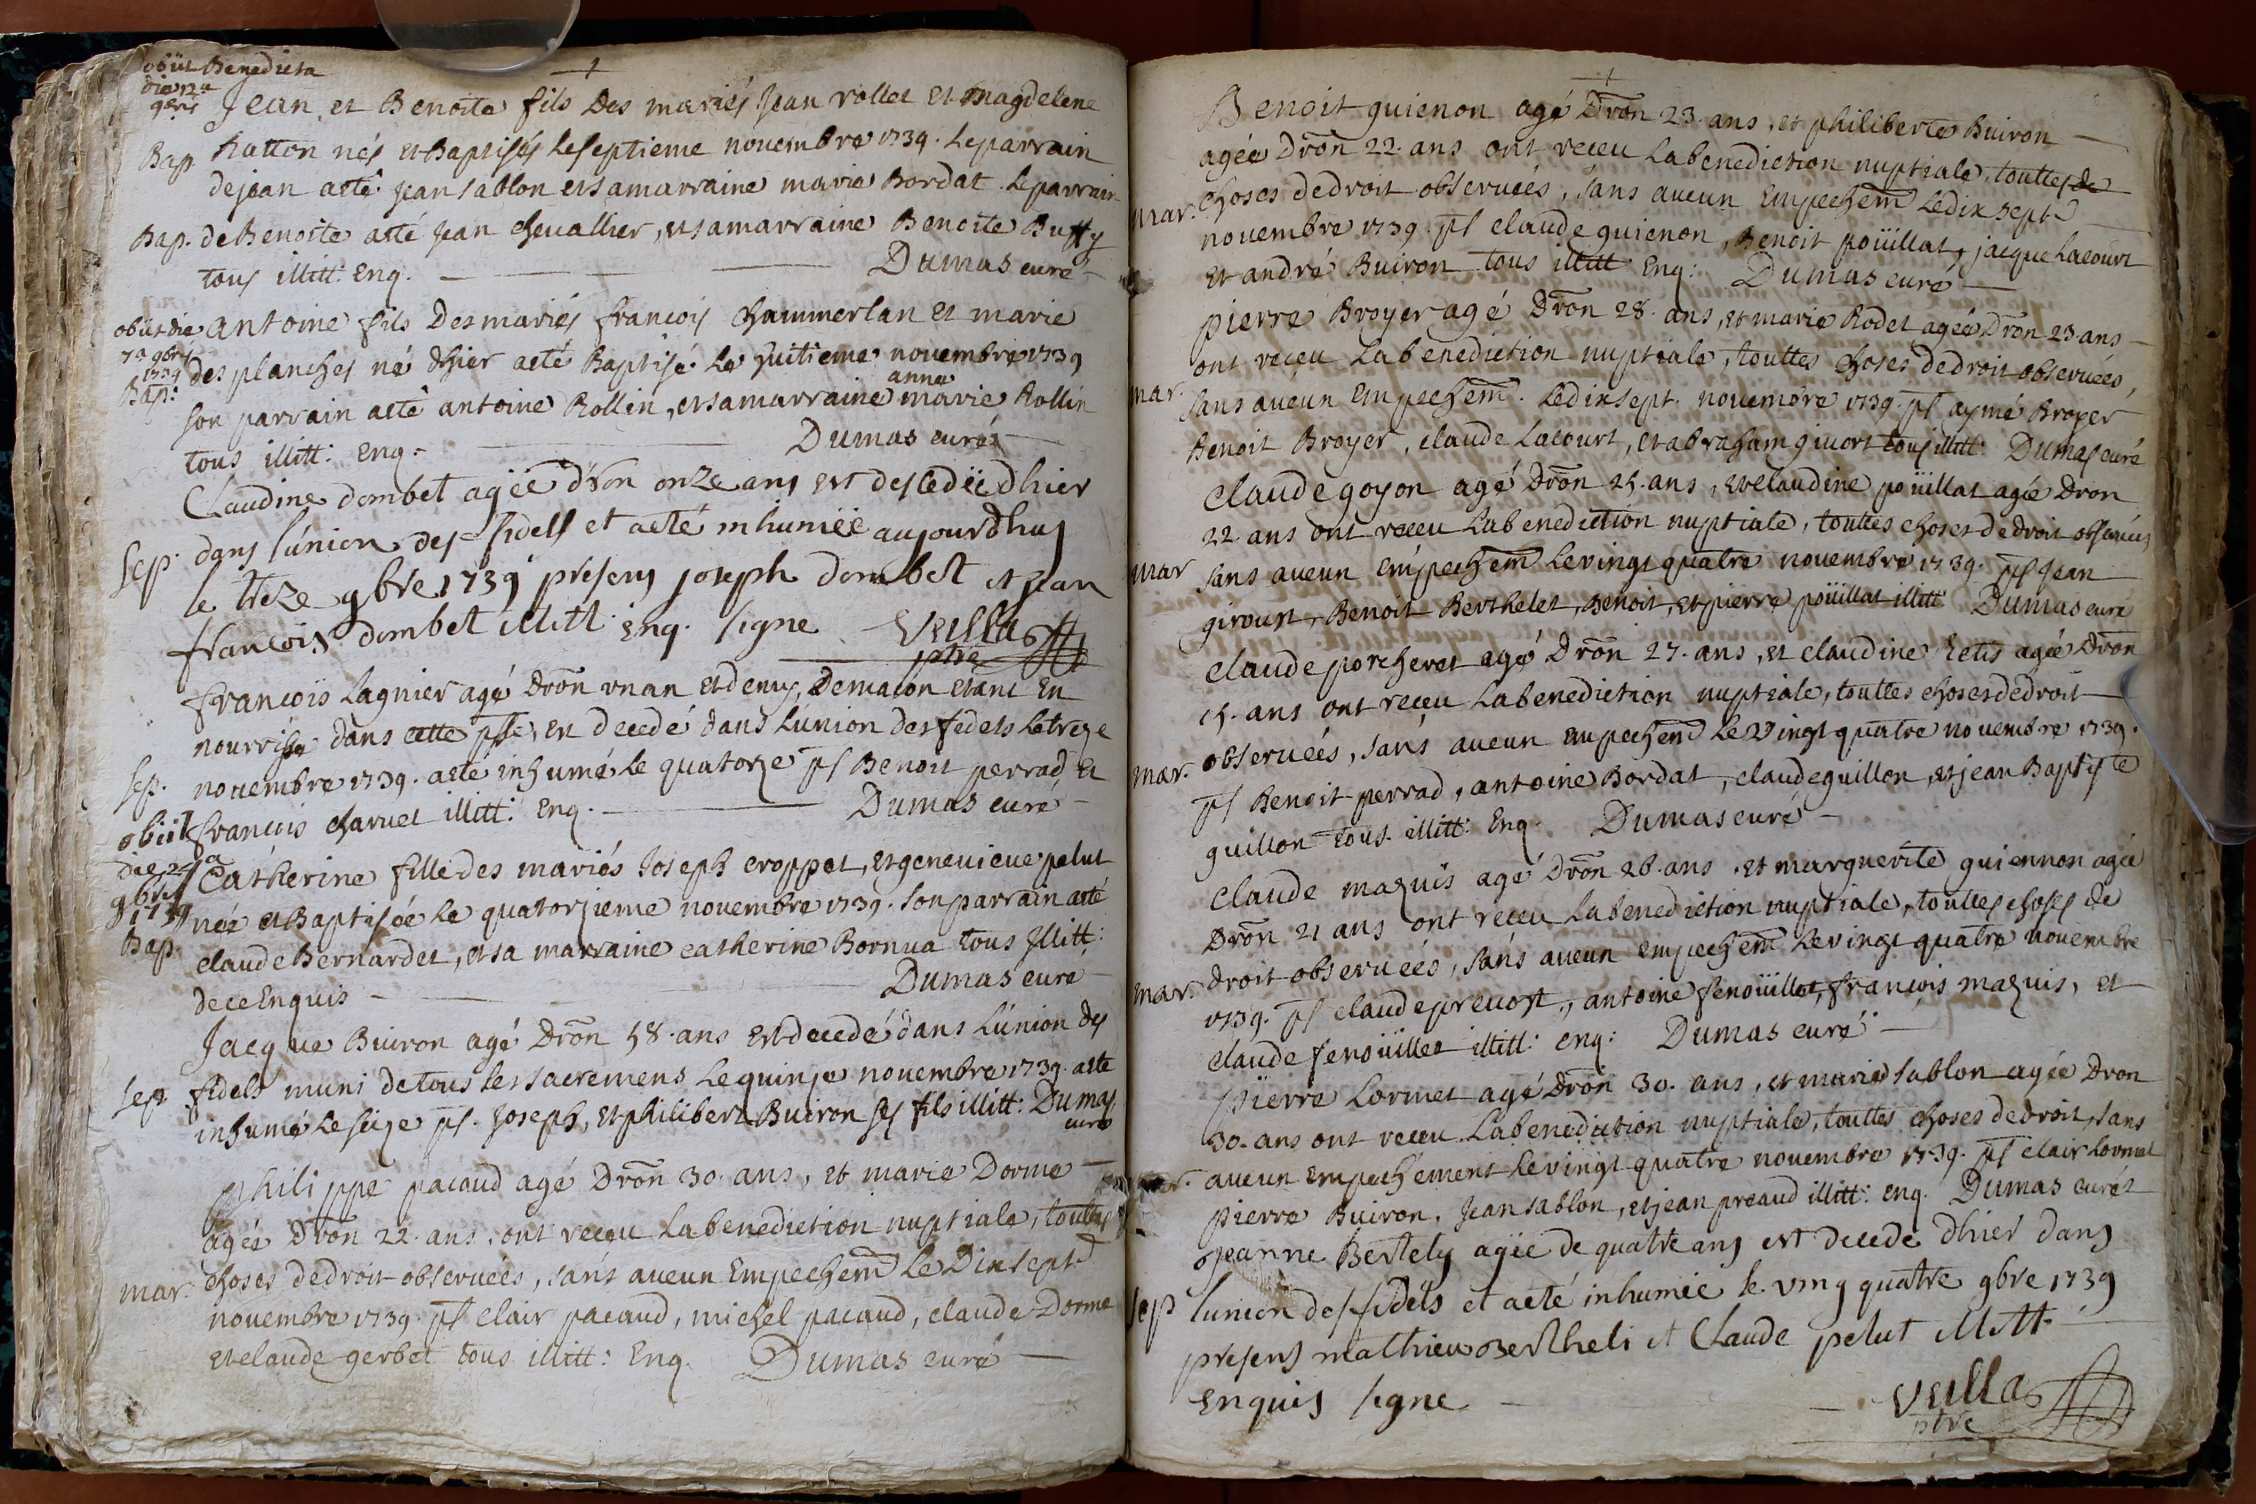 obiit Benedicta
die 12a
9bris
Jean et Benoite fils Des mariés Jean rollet Et Magdelene
Bap. Ratton nés et Baptisés Le septieme novembre 1739. Le parrain
de jean a eté jean sablon et sa marraine marie Bordat. Le parrain
Bap. de Benoite a eté jean chevallier, et sa marraine Benoite Buffy
tous illitt: Enq. Dumas curé
obiit die antoine fils Des mariés françois chammerlan Et marie
9bris
1739 des planches né dhier a eté Baptisé Le huitieme novembre 1739
Bap: anne
son parrain a eté antoine Rollin, et sa marraine marie Rollin
tous illitt: Enq. Dumas curé
Claudine dombet agée dron onze ans est decedée dhier
sep. dans lunion des fidels et a eté inhumée aujourdhuy
le treze 9bre 1739 presens joseph dombet et jean
francois dombet illitt: enq. signe Vulla
ptre
françois Lagnier agé Dron un an Et demy, De macon Etant En
nourrisse dans cette psse, est decedé dans L'union des fidels Le treze
sep. novembre 1739. a eté inhumé Le quatorze ps Benoit perrad Et
obiit françois charvet illitt: Enq. Dumas curé
die
9bris
1739
Catherine fille des mariés Joseph croppet, et genevieve pelut
née et Baptisée Le quatorzieme novembre 1739. son parrain a eté
Bap. claude Bernardet, et sa marraine catherine Bornua tous Illitt:
de ce Enquis Dumas curé
Jacque Buiron agé Dron 58. ans Est decedé dans L'union des
sep. fidels muni de tous les sacremens Le quinze novembre 1739. a eté
inhumé Le seize ps. Joseph, et philibert Buiron ses fils illitt: Dumas
curé
philippe pacaud agé Dron 30. ans, et marie Dorme
agée Dron 22. ans, ont reçeu La benediction nuptiale, touttes
mar. choses de droit observeés, sans aucun Empechem Le Dix sept
novembre 1739 ps clair pacaud, michel pacaud, claude Dorme
et claude gerbet tous illitt: Enq. Dumas curé
Benoit guienon agé Dron 23. ans, et philiberte Buiron
agée Dron 22. ans ont reçeu La benediction nuptiale, touttes de
mar. choses de droit observeés, sans aucun Empechem Le dix sept
novembre 1739 ps claude guienon, Benoit poüillat, jacque Lacourt
Et andré Buiron tous illitt Enq: Dumas curé
pierre Broyer agé Dron 28. ans, et marie Rodet agée Dron 23 ans
ont reçeu La benediction nuptiale, touttes choses de droit observeés,
mar. sans aucun Empechem. Le dix sept. novembre 1739. ps aymé Broyer
Benoit Broyer, claude Lacourt, et abraham givort tous illitt: Dumas curé
claude goyon agé Dron 25. ans, et claudine poüillat agée Dron
22 ans ont reçeu La benediction nuptiale, touttes choses de droit observeés
mar sans aucun empechem Le vingt quatre novembre 1739. ps Jean
giroust, Benoit Berthelet, Benoit, et pierre poüillat illitt: Dumas curé
claude porcheret agé Dron 27. ans, et claudine Retis agée Dron
15. ans ont reçeu La benediction nuptiale, touttes choses de droit
mar. observeés, sans aucun empechem Le vingt quatre novembre 1739.
ps Benoit perrad, antoine Bordat, claude guillon, et jean Baptiste
guillon tous illitt: Enq. Dumas curé
claude mazuis agé Dron 26. ans, et marguerite guiennon agée
Dron 21 ans ont reçeu La benediction nuptiale, touttes choses de
mar. droit observeés, sans aucun empechem Le vingt quatre novembre
1739. ps claude prevost, antoine fenoüillet, françois mazuis, et
claude fenoüillet illitt: enq: Dumas curé
pierre Lormet agé Dron 30. ans, et marie sablon agée Dron
30. ans ont reçeu La benediction nuptiale, touttes choses de droit, sans
mar. aucun Empechement Le vingt quatre novembre 1739. ps clair Lormet
pierre Buiron, Jean sablon, et jean preaud illitt: enq. Dumas curé
jeanne Bertely agée de quatre ans est decede dhier dans
sep lunion des fidels et a eté inhumée le ving quatre 9bre 1739
presens mathieu Bertheli et Claude pelut illitt.
enquis signe Vulla
ptre